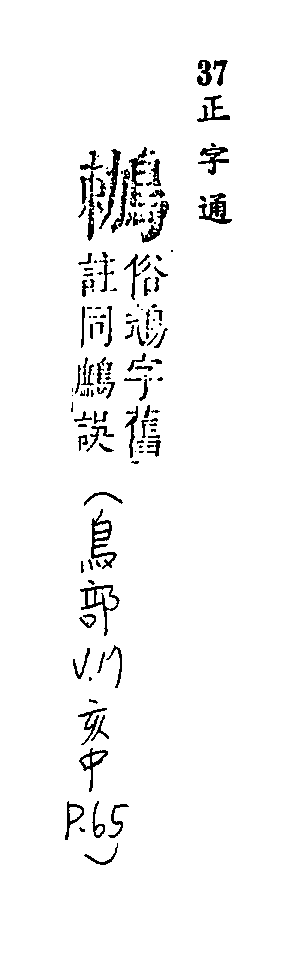 37正字通
俗字舊
註同誤
(鳥部 V.17 亥中 P.65)